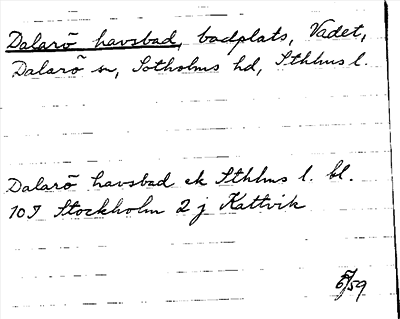 Dalarö havsbad, badplats, Vadet,
Dalarö sn, Sotholms hd, Sthlms l.
Dalarö havsbad ek Sthlms l. bl.
10I Stockholm 2 j Kattvik
/59